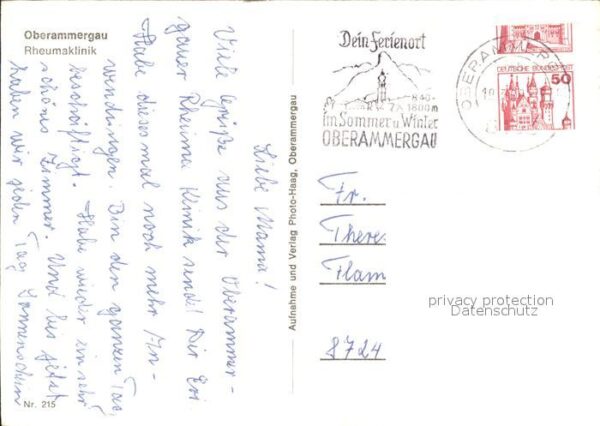 Oberammergau
Rheumaklinik
Liebe Mama!
Viele Grüße aus der Oberammer-
gauer Rheuma Klinik sendet Dir Eri
Habe dieses mal noch mehr An-
wendungen. Bin den ganzen Tag
beschäftigt. Habe wieder ein sehr
schönes Zimmer. Und bis jetzt
haben wir jeden Tag Sonnenschein
Nr. 215
Aufnahme und Verlag Photo-Haag, Oberammergau
Dein Ferienort
1800m
im Sommer u Winter
OBERAMMERGAU
OBERAMMERGAU
DEUTSCHE BUNDESPOST
50
Fr.
There
Flam
8724
privacy protection
Datenschutz